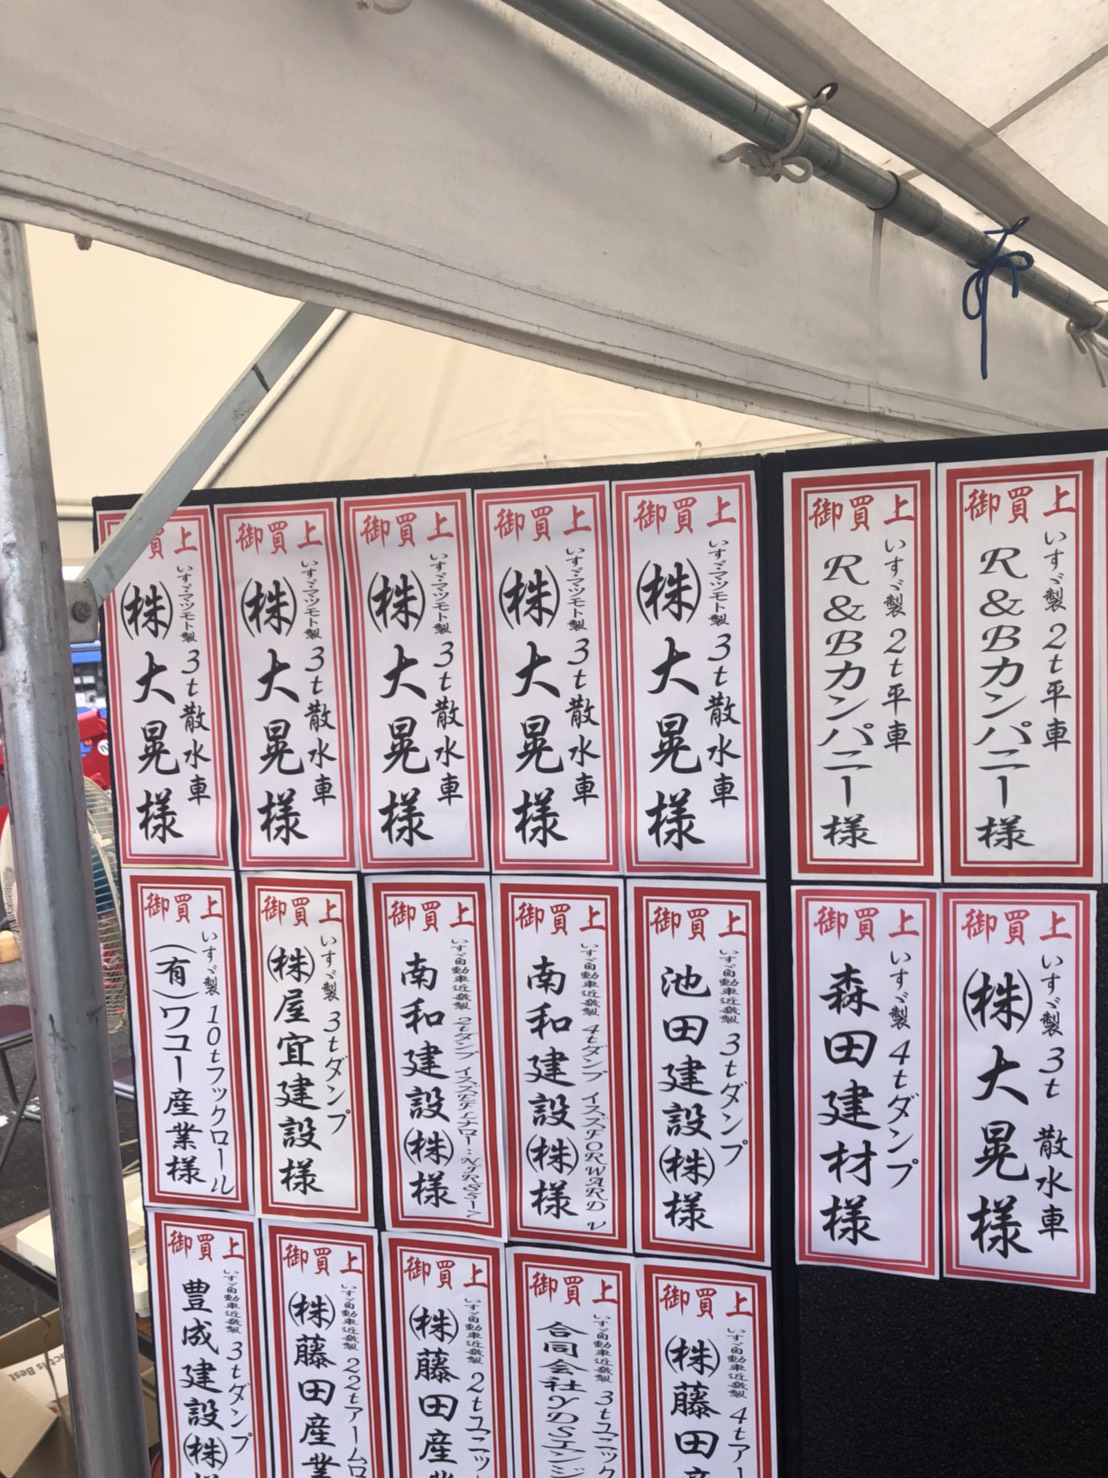 買上
いすゞマツモト製 3t散水車
(株)大晃様
御買上
いすゞマツモト製 3t散水車
(株)大晃様
御買上
いすゞマツモト製 3t散水車
(株)大晃様
御買上
いすゞマツモト製 3t散水車
(株)大晃様
御買上
いすゞマツモト製 3t散水車
(株)大晃様
御買上
いすゞ製 2t平車
R&Bカンパニー様
御買上
いすゞ製 2t平車
R&Bカンパニー様
御買上
いすゞ製 10tフックロール
(有)ワコー産業様
御買上
いすゞ製 3tダンプ
(株)屋宜建設様
御買上
いすゞ自動車近畿製 2tダンプ
南和建設(株)様
御買上
いすゞ自動車近畿製 4tダンプ イスズFORWARD
南和建設(株)様
御買上
いすゞ自動車近畿製 3tダンプ
池田建設(株)様
御買上
いすゞ製 4tダンプ
森田建材様
御買上
いすゞ製 3t 散水車
(株)大晃様
御買上
いすゞ自動車近畿製 3tダンプ
豊成建設(株)
御買上
いすゞ自動車近畿製 22tアームロ
(株)藤田産業
御買上
いすゞ自動車近畿製 2tユニッ
(株)藤田産
御買上
いすゞ自動車近畿製 3tユニック
合同会社YDSエンジ
御買上
いすゞ自動車近畿製 4tアー
(株)藤田